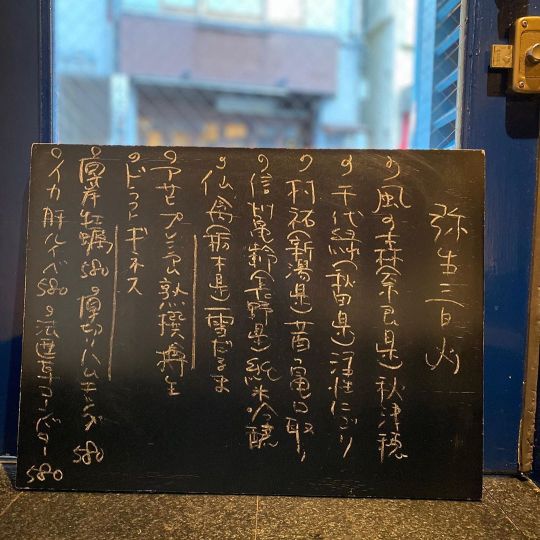 弥生三日火
風の森(奈良県)秋津穂
千代緑(秋田県)活性にごり
村祐(新潟県)茜 亀口取り
信州亀齢(長野県)純米吟醸
仙禽(栃木県)雪だるま
アサヒプレミアム熟撰樽生
ドラフトギネス
厚岸牡蠣580 厚切りハムエッグ580
イカ肝ルイベ580 法蓮草コーンバター580